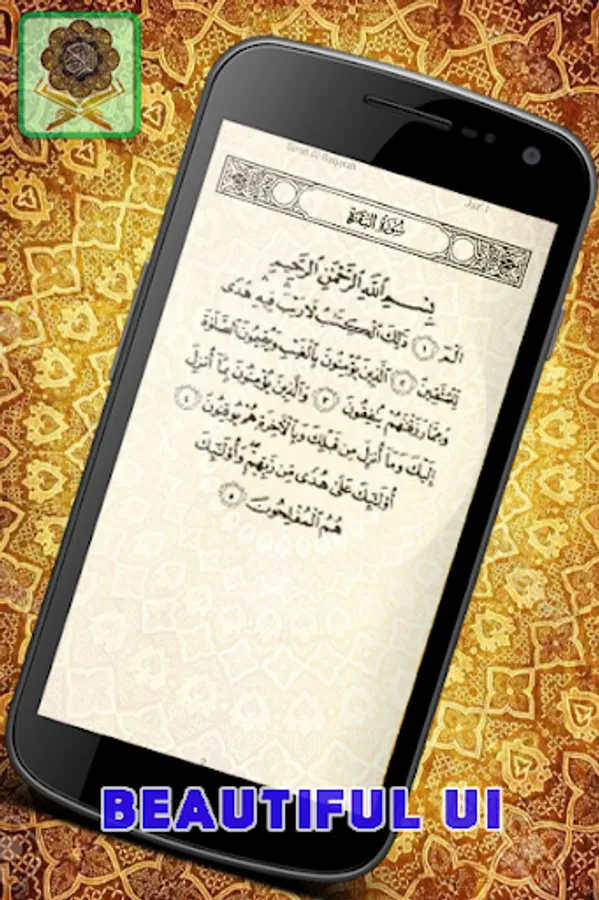 Surah Al Baqarah
Juz' 1
سُورَةُ البَقَرَةِ
بِسْمِ ٱللَّهِ ٱلرَّحْمَٰنِ ٱلرَّحِيمِ
الٓمٓ ١ ذَٰلِكَ ٱلْكِتَٰبُ لَا رَيْبَ فِيهِ هُدًى
لِّلْمُتَّقِينَ ٢ ٱلَّذِينَ يُؤْمِنُونَ بِٱلْغَيْبِ وَيُقِيمُونَ ٱلصَّلَوٰةَ
وَمِمَّا رَزَقْنَٰهُمْ يُنفِقُونَ ٣ وَٱلَّذِينَ يُؤْمِنُونَ بِمَآ أُنزِلَ
إِلَيْكَ وَمَآ أُنزِلَ مِن قَبْلِكَ وَبِٱلْءَاخِرَةِ هُمْ يُوقِنُونَ ٤
أُو۟لَٰٓئِكَ عَلَىٰ هُدًى مِّن رَّبِّهِمْ وَأُو۟لَٰٓئِكَ
هُمُ ٱلْمُفْلِحُونَ ٥
2
BEAUTIFUL UI